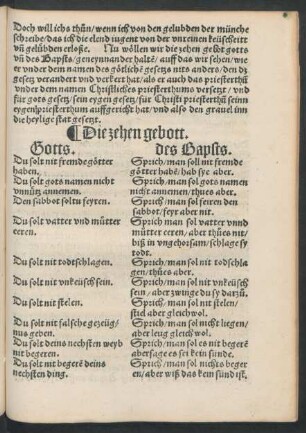 Doch will ichs thůn/wenn ich von den gelubden der münche
schreibe/das ich die elend iugent von der vnreinen keüscheitt
vñ gelübden erlöße. Nu wöllen wir die zehen gebot gotts
vñ des Bapsts/gegeynnander haltẽ/auff das wir sehen/wie
er vnder dem namen des götlichẽ gesetzs nits anders/den dz
gesetz verandert vnd verkert hat/als er auch das priesterthũ
vnder dem namen Christliches priesterthums versetzt/vnd
für gots gesetz/sein eygen gesetz/für Christi priesterthũ seinn
eygen priesterthum auffgericht hat/vnd also den grauel inn
die heylige stat gesetzt.
¶ Die zehen gebott.
Gotts.
des Bapsts.
Du solt nit fremde götter
haben.
Sprich/man soll nit fremde
götter habẽ/hab sye aber.
Du solt gots namen nicht
vnnütz annemen.
Sprich/man sol gots namen
nicht annemen/thues aber.
Den sabbot soltu feyren.
Sprich/man sol feiren den
sabbot/feyr aber nit.
Du solt vatter vnd mütter
eren.
Sprich man sol vatter vnnd
mütter eren/aber thües nit/
biß in vngehorsam/schlage sy
todt.
Du solt nit todtschlagen.
Sprich/man sol nit todschla
gen/thües aber.
Du solt nit vnkeüsch sein.
Sprich/man sol nit vnkeüsch
sein/aber zwinge du sy darzů.
Du solt nit stelen.
Sprich/man sol nit stelen/
stiel aber gleich wol.
Du solt nit falsche gezeüg/
nus geben.
Sprich/man sol nicht liegen/
aber leug gleich wol.
Du solt deins nechsten weyb
nit begeren.
Sprich/man sol es nit begerẽ
aber sage es sei kein sünde.
Du solt nit begerẽ deins
nechsten ding.
Sprich/man sol nichts beger
en/aber wiß das kein sünd ist.